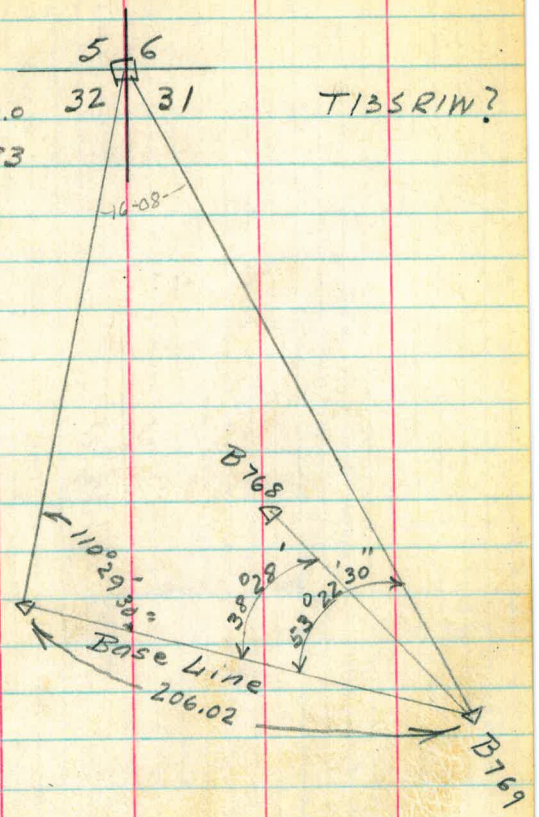 5 6
32 31
T13S R1W?
.0
3
16-08
B768
110° 29' 30"
38° 28'
53° 22' 30"
Base Line
206.02
B769